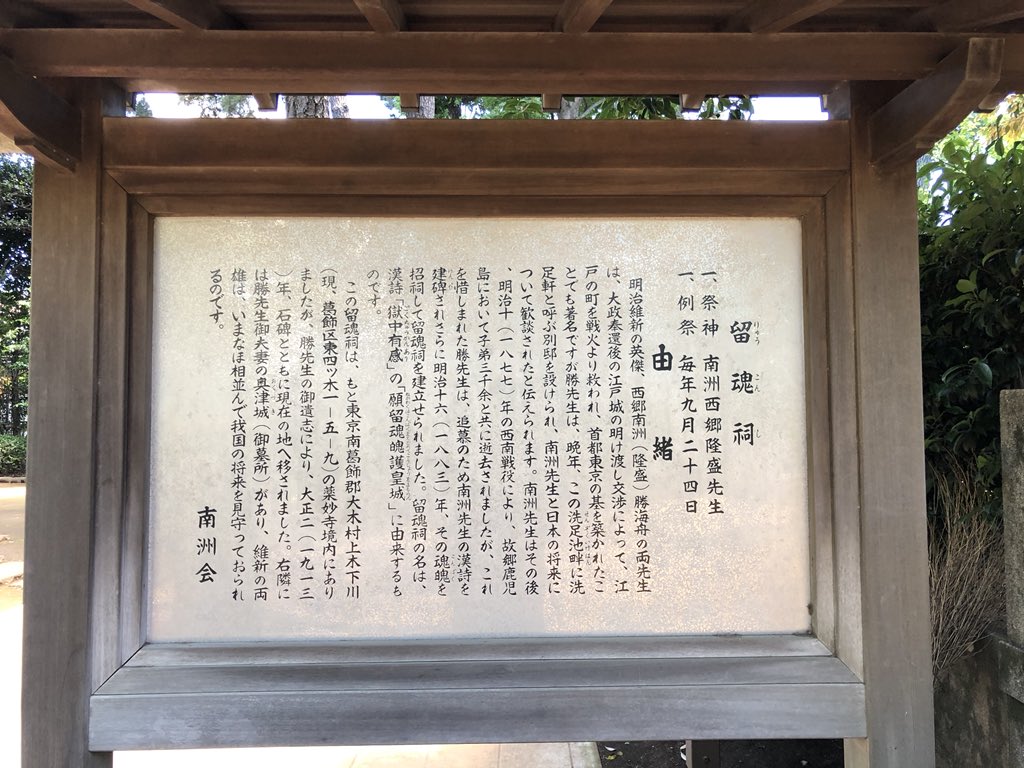 留魂祠
りゅう こん し
一、祭神　南洲西郷隆盛先生
一、例祭　毎年九月二十四日
由緒
明治維新の英傑、西郷南洲（隆盛）勝海舟の両先生
は、大政奉還後の江戸城の明け渡し交渉によって、江
戸の町を戦火より救われ、首都東京の基を築かれたこ
とでも著名ですが勝先生は、晩年、この洗足池畔に洗
足軒と呼ぶ別邸を設けられ、南洲先生と日本の将来に
ついて歓談されたと伝えられます。南洲先生はその後
、明治十（一八七七）年の西南戦役により、故郷鹿児
島において子弟三千余と共に逝去されましたが、これ
を惜しまれた勝先生は、追慕のため南洲先生の漢詩を
建碑されさらに明治十六（一八八三）年、その魂魄を
招祠して留魂祠を建立せられました。留魂祠の名は、
漢詩「獄中有感」の「願留魂魄護皇城」に由来するも
のです。
この留魂祠は、もと東京南葛飾郡大木村上木下川
（現、葛飾区東四ッ木一－五－九）の薬妙寺境内にあり
ましたが、勝先生の御遺志により、大正二（一九一三
）年、石碑とともに現在の地へ移されました。右隣に
は勝先生御夫妻の奥津城（御墓所）があり、維新の両
雄は、いまなほ相並んで我国の将来を見守っておられ
るのです。
南洲会